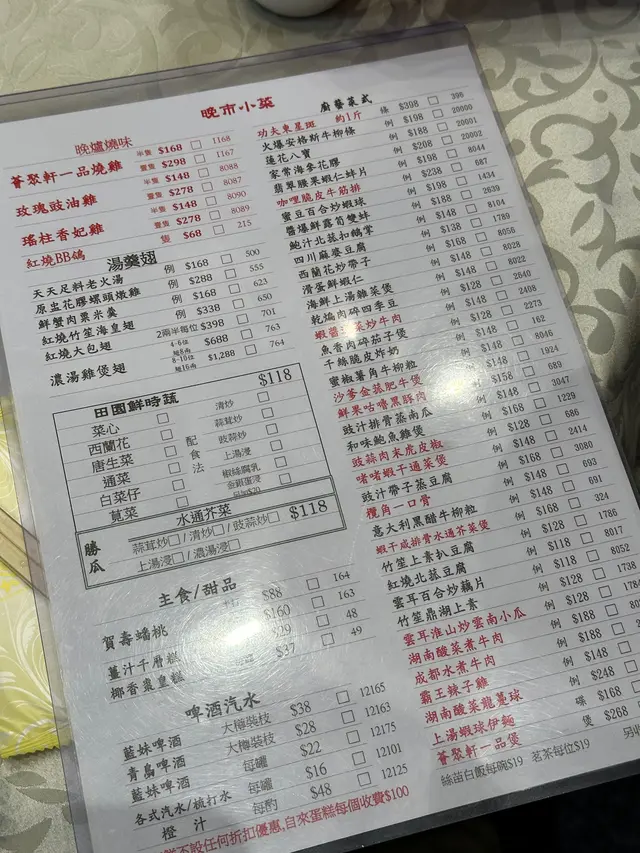 晚市小菜
晚爐燒味
薈聚軒一品燒雞
半隻 $168 1168
壹隻 $298 1167
玫瑰豉油雞
半隻 $148 8088
壹隻 $278 8087
瑤柱香妃雞
半隻 $148 8090
壹隻 $278 8089
紅燒BB鴿
隻 $68 215
湯羹翅
天天足料老火湯 例 $168 500
原盅花膠螺頭燉雞 例 $288 555
鮮蟹肉粟米羹 例 $168 623
紅燒竹笙海皇翅 例 $338 650
紅燒大包翅 2兩半每位 $398 701
濃湯雞煲翅 4-6位 翅8兩 $688 763
8-10位 翅16兩 $1,288 764
田園鮮時蔬 $118
菜心
西蘭花
唐生菜
通菜
白菜仔
莧菜
配食法
清炒
蒜茸炒
豉蒜炒
上湯浸
椒絲腐乳
金銀蛋浸
另加$20
水通芥菜
勝瓜
蒜茸炒 / 清炒 / 豉蒜炒 $118
上湯浸 / 濃湯浸
主食/甜品
賀壽蟠桃
薑汁千層糕
椰香棗皇糕
$88 164
$160 163
$29 48
$37 49
啤酒汽水
藍妹啤酒 大樽裝枝 $38 12165
青島啤酒 大樽裝枝 $28 12163
藍妹啤酒 每罐 $22 12175
各式汽水/梳打水 每罐 $16 12101
橙汁 每酌 $48 12125
不設任何折扣優惠,自來蛋糕每個收費$100
廚藝菜式
功夫東星斑 約1斤
火爆安格斯牛柳條
蓮花八寶
家常海參花膠
翡翠腰果蝦仁蚌片
咖哩脆皮牛筋排
蜜豆百合炒蝦球
醬爆鮮露筍雙蚌
鮑汁北菇扣鵝掌
四川麻婆豆腐
西蘭花炒帶子
滑蛋鮮蝦仁
海鮮上湯雜菜煲
乾煸肉碎四季豆
蝦醬 菜炒牛肉
魚香肉碎茄子煲
千絲脆皮炸奶
蜜椒薯角牛柳粒
沙爹金菇肥牛煲
鮮果咕嚕黑豚肉
豉汁排骨蒸南瓜
和味鮑魚雞煲
豉蒜肉末虎皮椒
啫啫蝦干通菜煲
豉汁帶子蒸豆腐
欖角一口骨
意大利黑醋牛柳粒
蝦干咸排骨水通芥菜煲
竹笙上素扒豆腐
紅燒北菰豆腐
雲耳百合炒藕片
竹笙鼎湖上素
雲耳淮山炒雲南小瓜
湖南酸菜煮牛肉
成都水煮牛肉
霸王辣子雞
湖南酸菜龍躉球
上湯蝦球伊麵
薈聚軒一品煲
條 $398 398
例 $198 20000
例 $188 20001
例 $208 20002
例 $198 8044
例 $238 687
例 $198 1434
例 $188 2639
例 $148 8104
例 $138 1789
例 $168 8056
例 $148 8028
例 $148 8022
2640
2408
2273
162
8046
1924
689
3047
1229
686
2414
3080
693
691
324
1786
8017
8052
1738
例 $248
碟 $168
煲 $268
絲苗白飯每碗$19 茗茶每位$19